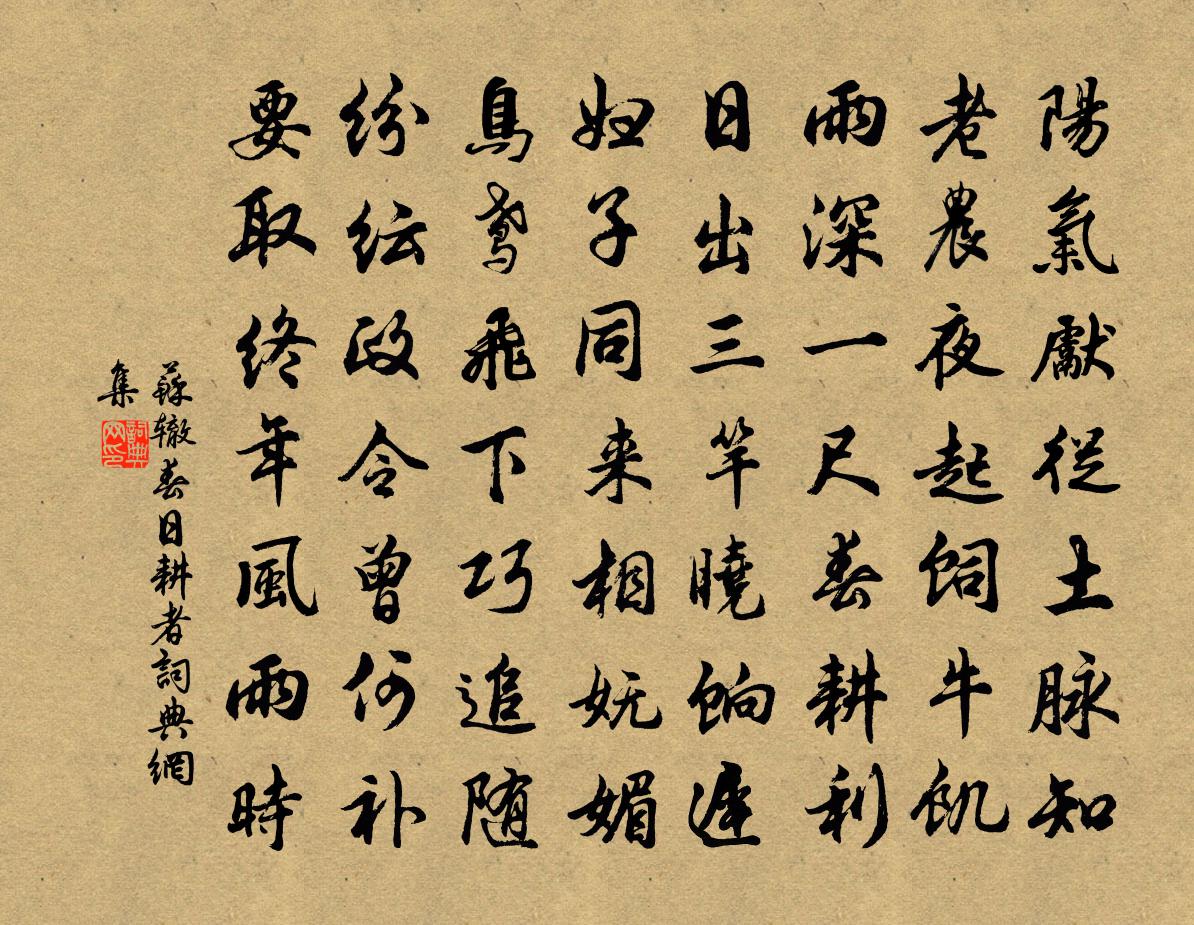 陽氣獻從土脉知
老農夜起飼牛飢
雨深一尺春耕利
日出三竿曉餉遲
妇子同来相妩媚
鳥鳶飛下巧追随
紛紜政令曾何补
要取終年風雨時
蘇轍春日耕者詞典網
集
詞典
网印